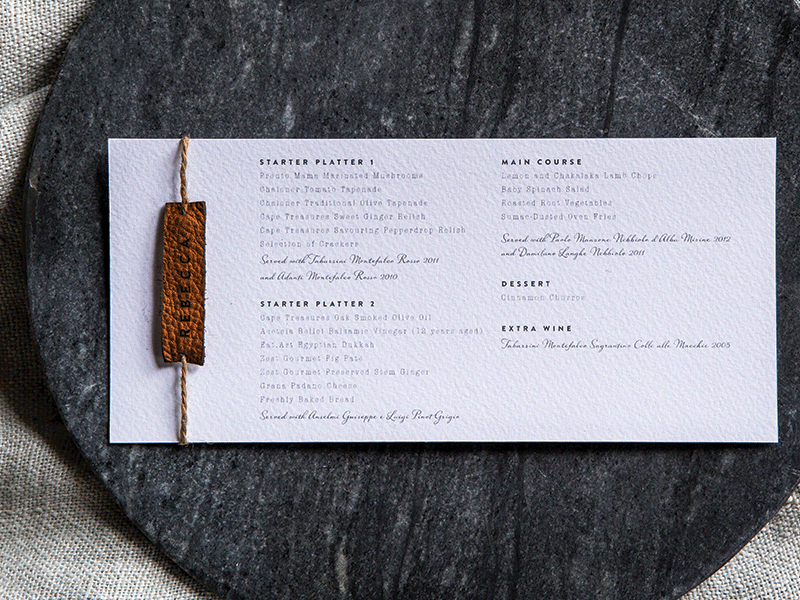 REBECCA
STARTER PLATTER 1
Pronto Mama Marinated Mushrooms
Chaloner Tomato Tapenade
Chaloner Traditional Olive Tapenade
Cape Treasures Sweet Ginger Relish
Cape Treasures Savouring Pepperdrop Relish
Selection of Crackers
Served with Tabarrini Montefalco Rosso 2011
and Adanti Montefalco Rosso 2010
STARTER PLATTER 2
Cape Treasures Oak Smoked Olive Oil
Acetoia Balsamic Vinegar (12 years aged)
Eat.Art Egyptian Dukkah
Zest Gourmet Fig Pate
Zest Gourmet Preserved Stem Ginger
Grana Padano Cheese
Freshly Baked Bread
Served with Anselmi Giuseppe e Luigi Pinot Grigio
MAIN COURSE
Lemon and Chakalaka Lamb Chops
Baby Spinach Salad
Roasted Root Vegetables
Sumac-Dusted Oven Fries
Served with Paolo Manzone Nebbiolo d'Alba Mirine 2012
and Damilano Langhe Nebbiolo 2011
DESSERT
Cinnamon Churros
EXTRA WINE
Tabarrini Montefalco Sagrantino Colle alle Macchie 2005